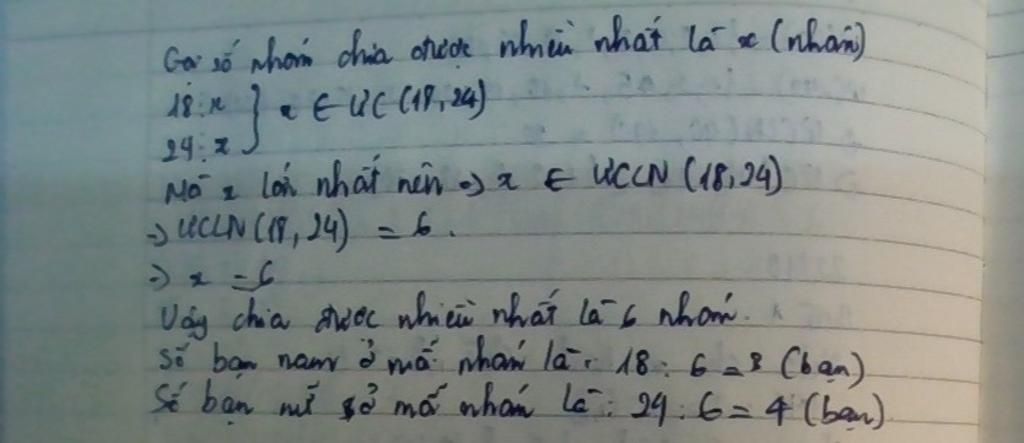 Gọi số nhóm chia được nhiều nhất là x (nhóm)
18 : x } x ∈ ƯC (18, 24)
24 : x
Mà x lớn nhất nên => x ∈ ƯCLN (18, 24)
=> ƯCLN (18, 24) = 6.
=> x = 6
Vậy chia được nhiều nhất là 6 nhóm.
Số bạn nam ở mỗi nhóm là: 18 : 6 = 3 (bạn)
Số bạn nữ ở mỗi nhóm là: 24 : 6 = 4 (bạn)